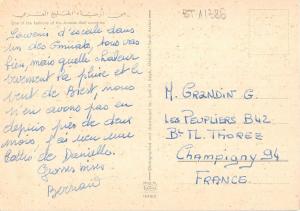 من أزياء الخليج العربي
One of the fashions of the Arabian Gulf countries
BT A1786
Souvenir d'escale dans
un des Emirats, tous vas
bien, mais quelle chaleur
vivement la pluie et le
vent de Brest, nous
n'en avons pas eu
depuis près de deux
mois, j'ai reçu une
lettre de Danielle.
Grosses bises
Bernard
M. GRANDIN G.
LES PEUPLIERS B42
Bd TL. THOREZ
CHAMPIGNY 94
FRANCE